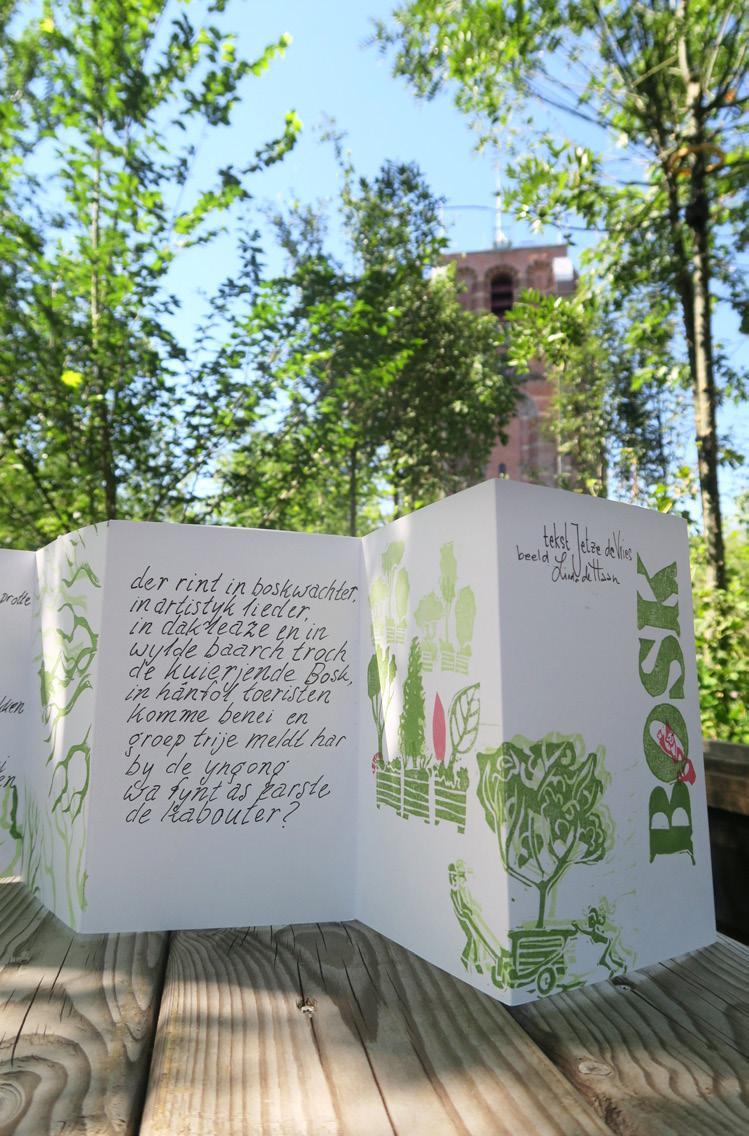 protte
der rint in boskwachter,
in artistyk lieder,
in dakleaze en in
wylde baarch troch
de kuierjende Bosk,
in hânfol toeristen
komme benei en
groep trije meldt har
by de yngong
wa fynt as earste
de kabouter?
tekst Jetze de Vries
beeld Linde de Haan
BOSK